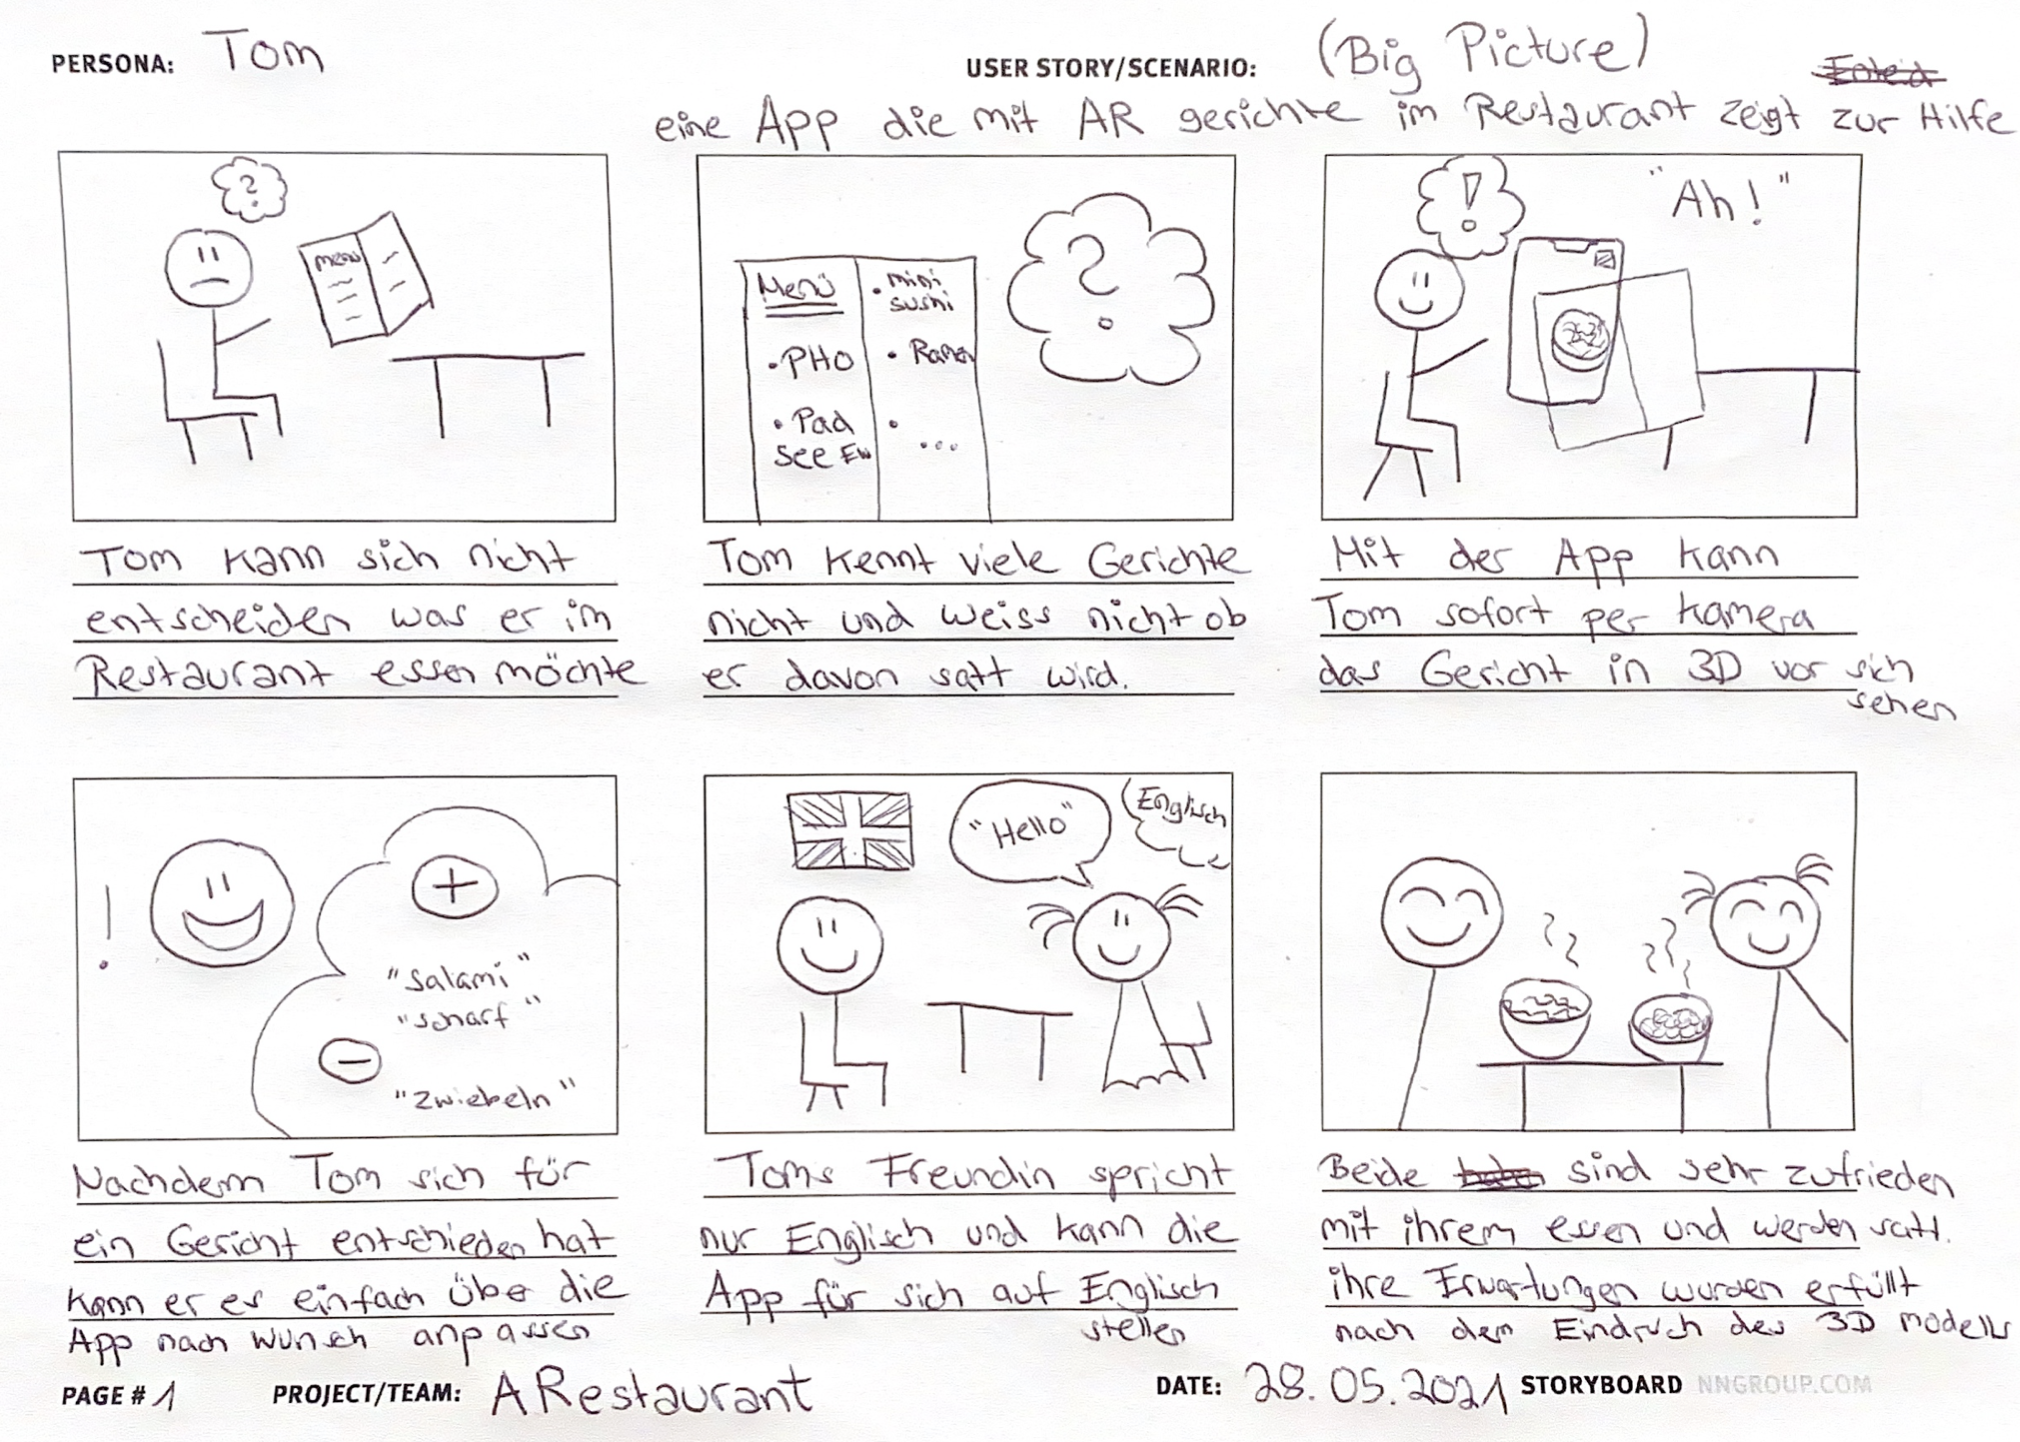 PERSONA: Tom
USER STORY/SCENARIO: (Big Picture)
eine App die mit AR gerichte im Restaurant zeigt zur Hilfe
?
menü
Menü
• PHO
• Pad
See Ew
• mini
sushi
• Ramen
•
...
?
!
"Ah!"
Tom kann sich nicht
entscheiden was er im
Restaurant essen möchte
Tom kennt viele Gerichte
nicht und weiss nicht ob
er davon satt wird.
Mit der App kann
Tom sofort per Kamera
das Gericht in 3D vor sich
sehen
!
+
"Salami"
"scharf"
-
"Zwiebeln"
"Hello"
(Englisch
Nachdem Tom sich für
ein Gericht entschieden hat
kann er es einfach über die
App nach wunsch anpassen
Toms Freundin spricht
nur Englisch und kann die
App für sich auf Englisch
stellen
Beide sind sehr zufrieden
mit ihrem essen und werden satt.
ihre Erwartungen wurden erfüllt
nach dem Eindruck des 3D modells
PAGE # 1 PROJECT/TEAM: ARestaurant
DATE: 28.05.2021 STORYBOARD NNGROUP.COM